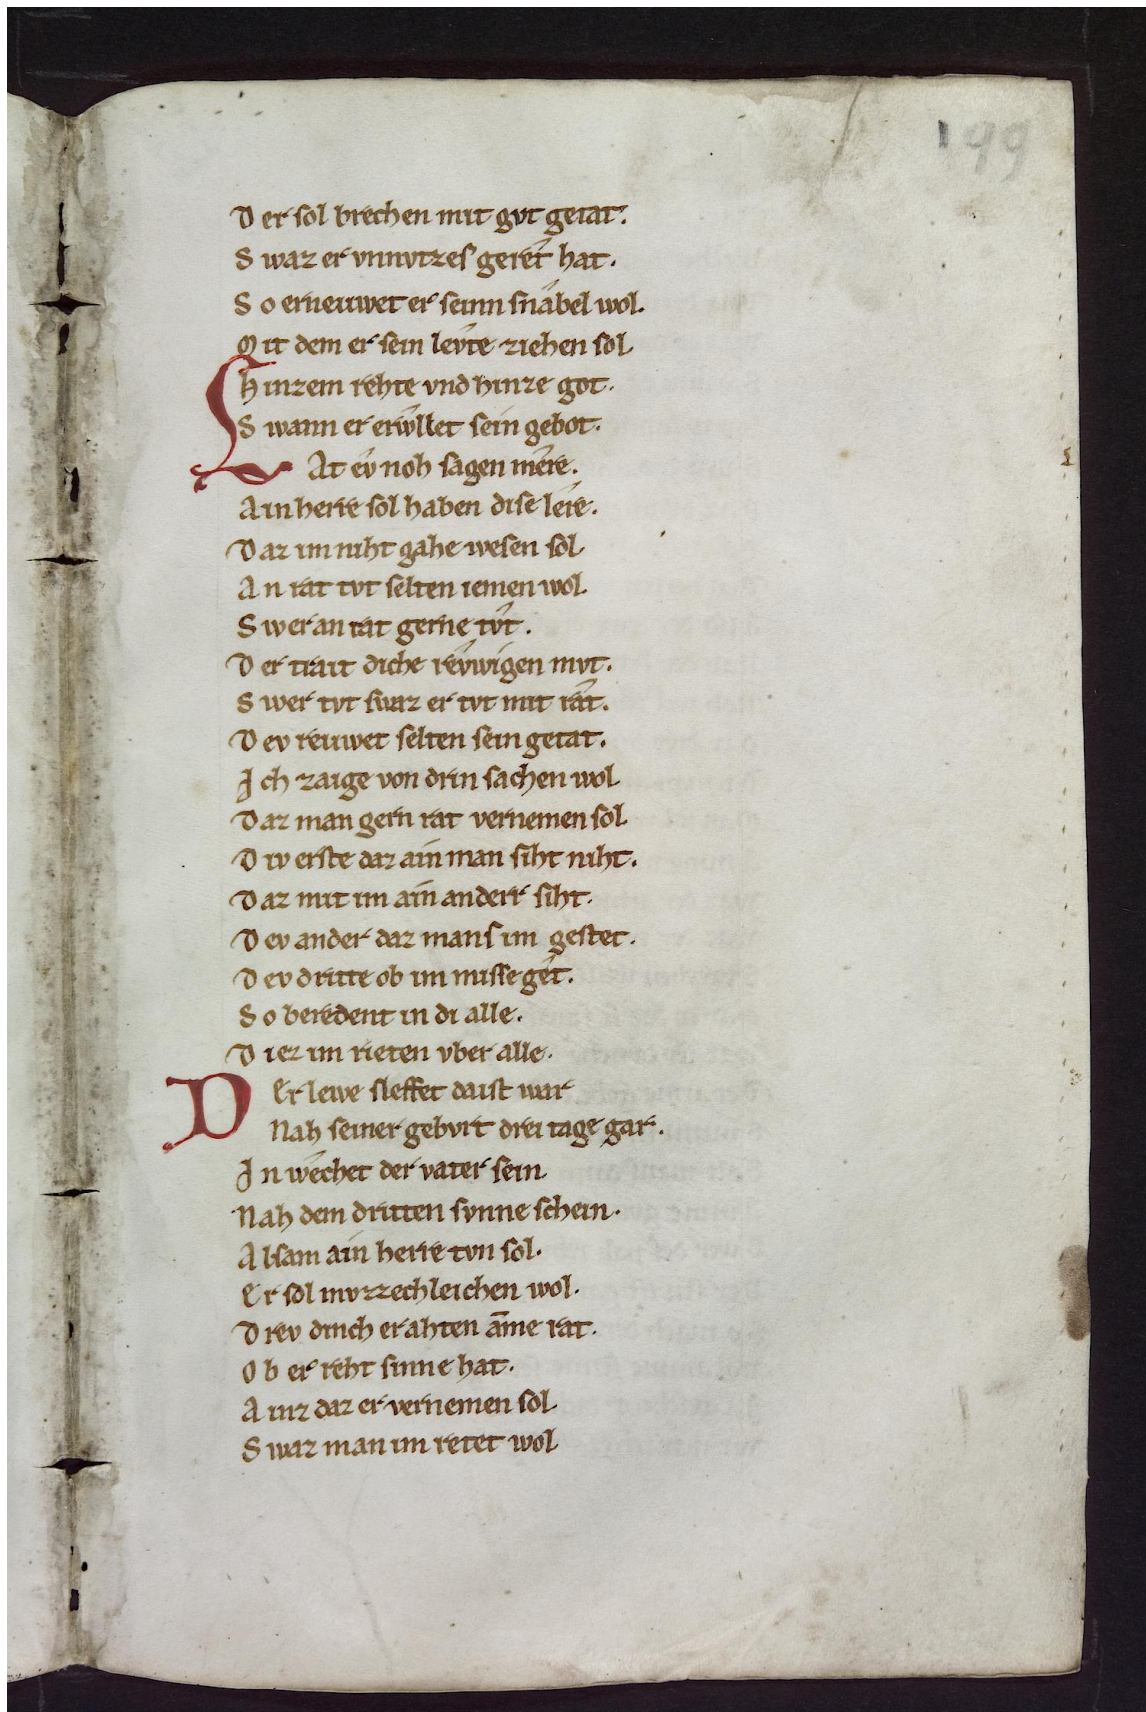 199
D er sol brechen mit gvt getat.
S waz er vnnvtzes geret hat.
S o erneuwet er seinn snabel wol.
M it dem er sein levte ziehen sol
h inzem rehte vnd hinze got.
S wann er erwllet sein gebot.
L At ev noh sagen mere.
A in herre sol haben dise lere.
D az im niht gahe wesen sol
A n rat tvt selten iemen wol.
S wer an rat gerne tvt.
D er trait diche revwigen mvt.
S wer tvt swaz er tvt mit rat.
D ev reuwet selten sein getat.
I ch zaige von drin sachen wol
D az man gern rat vernemen sol
D iv erste daz ain man siht niht.
D az mit im ain anderr siht.
D ev ander daz mans im gestet.
D ev dritte ob im misseget.
S o beredent in di alle.
D iez im rieten vber alle.
D Er lewe sleffet daist war
Nah seiner gebvrt drei tage gar.
I n wechet der vater sein
Nah dem dritten svnne schein.
A lsam ain herre tvn sol.
Er sol mvzzechleichen wol.
D rev dinch er ahten ane rat.
O b er reht sinne hat.
A inz daz er vernemen sol
S waz man im retet wol